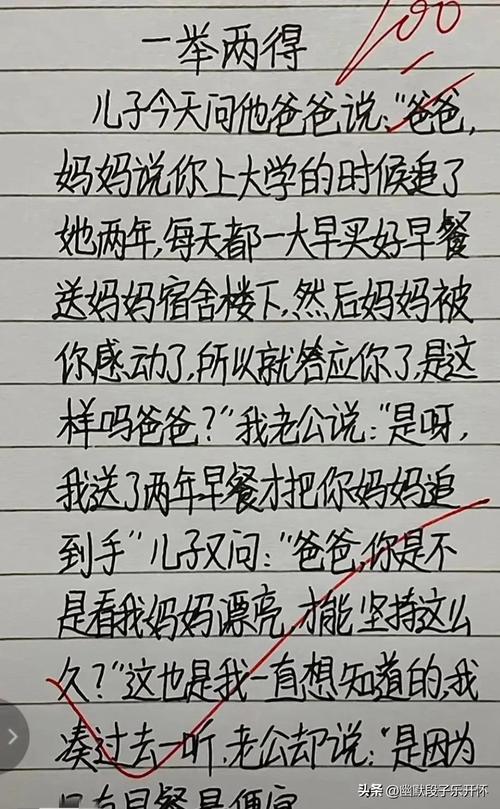 100
一举两得
儿子今天问他爸爸说:"爸爸,
妈妈说你上大学的时候追了
她两年,每天都一大早买好早餐
送妈妈宿舍楼下,然后妈妈被
你感动了,所以就答应你了,是这
样吗爸爸?"我老公说:"是呀,
我送了两年早餐才把你妈妈追
到手"儿子又问:"爸爸,你是不
是看我妈妈漂亮,才能坚持这么
久?"这也是我一直想知道的,我
凑过去一听,老公却说:"是因为
早餐是便宜
头条 @幽默段子乐开怀